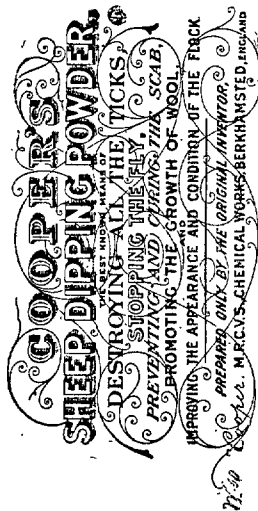 COOPER'S
SHEEP DIPPING POWDER.
THE BEST KNOWN MEANS OF
DESTROYING ALL THE TICKS,
STOPPING THE FLY,
PREVENTING AND CURING THE SCAB,
PROMOTING THE GROWTH OF WOOL,
AND
IMPROVING THE APPEARANCE AND CONDITION OF THE FLOCK.
PREPARED ONLY BY THE ORIGINAL INVENTOR,
Wm Cooper. M.R.C.V.S. CHEMICAL WORKS, BERKHAMSTED, ENGLAND